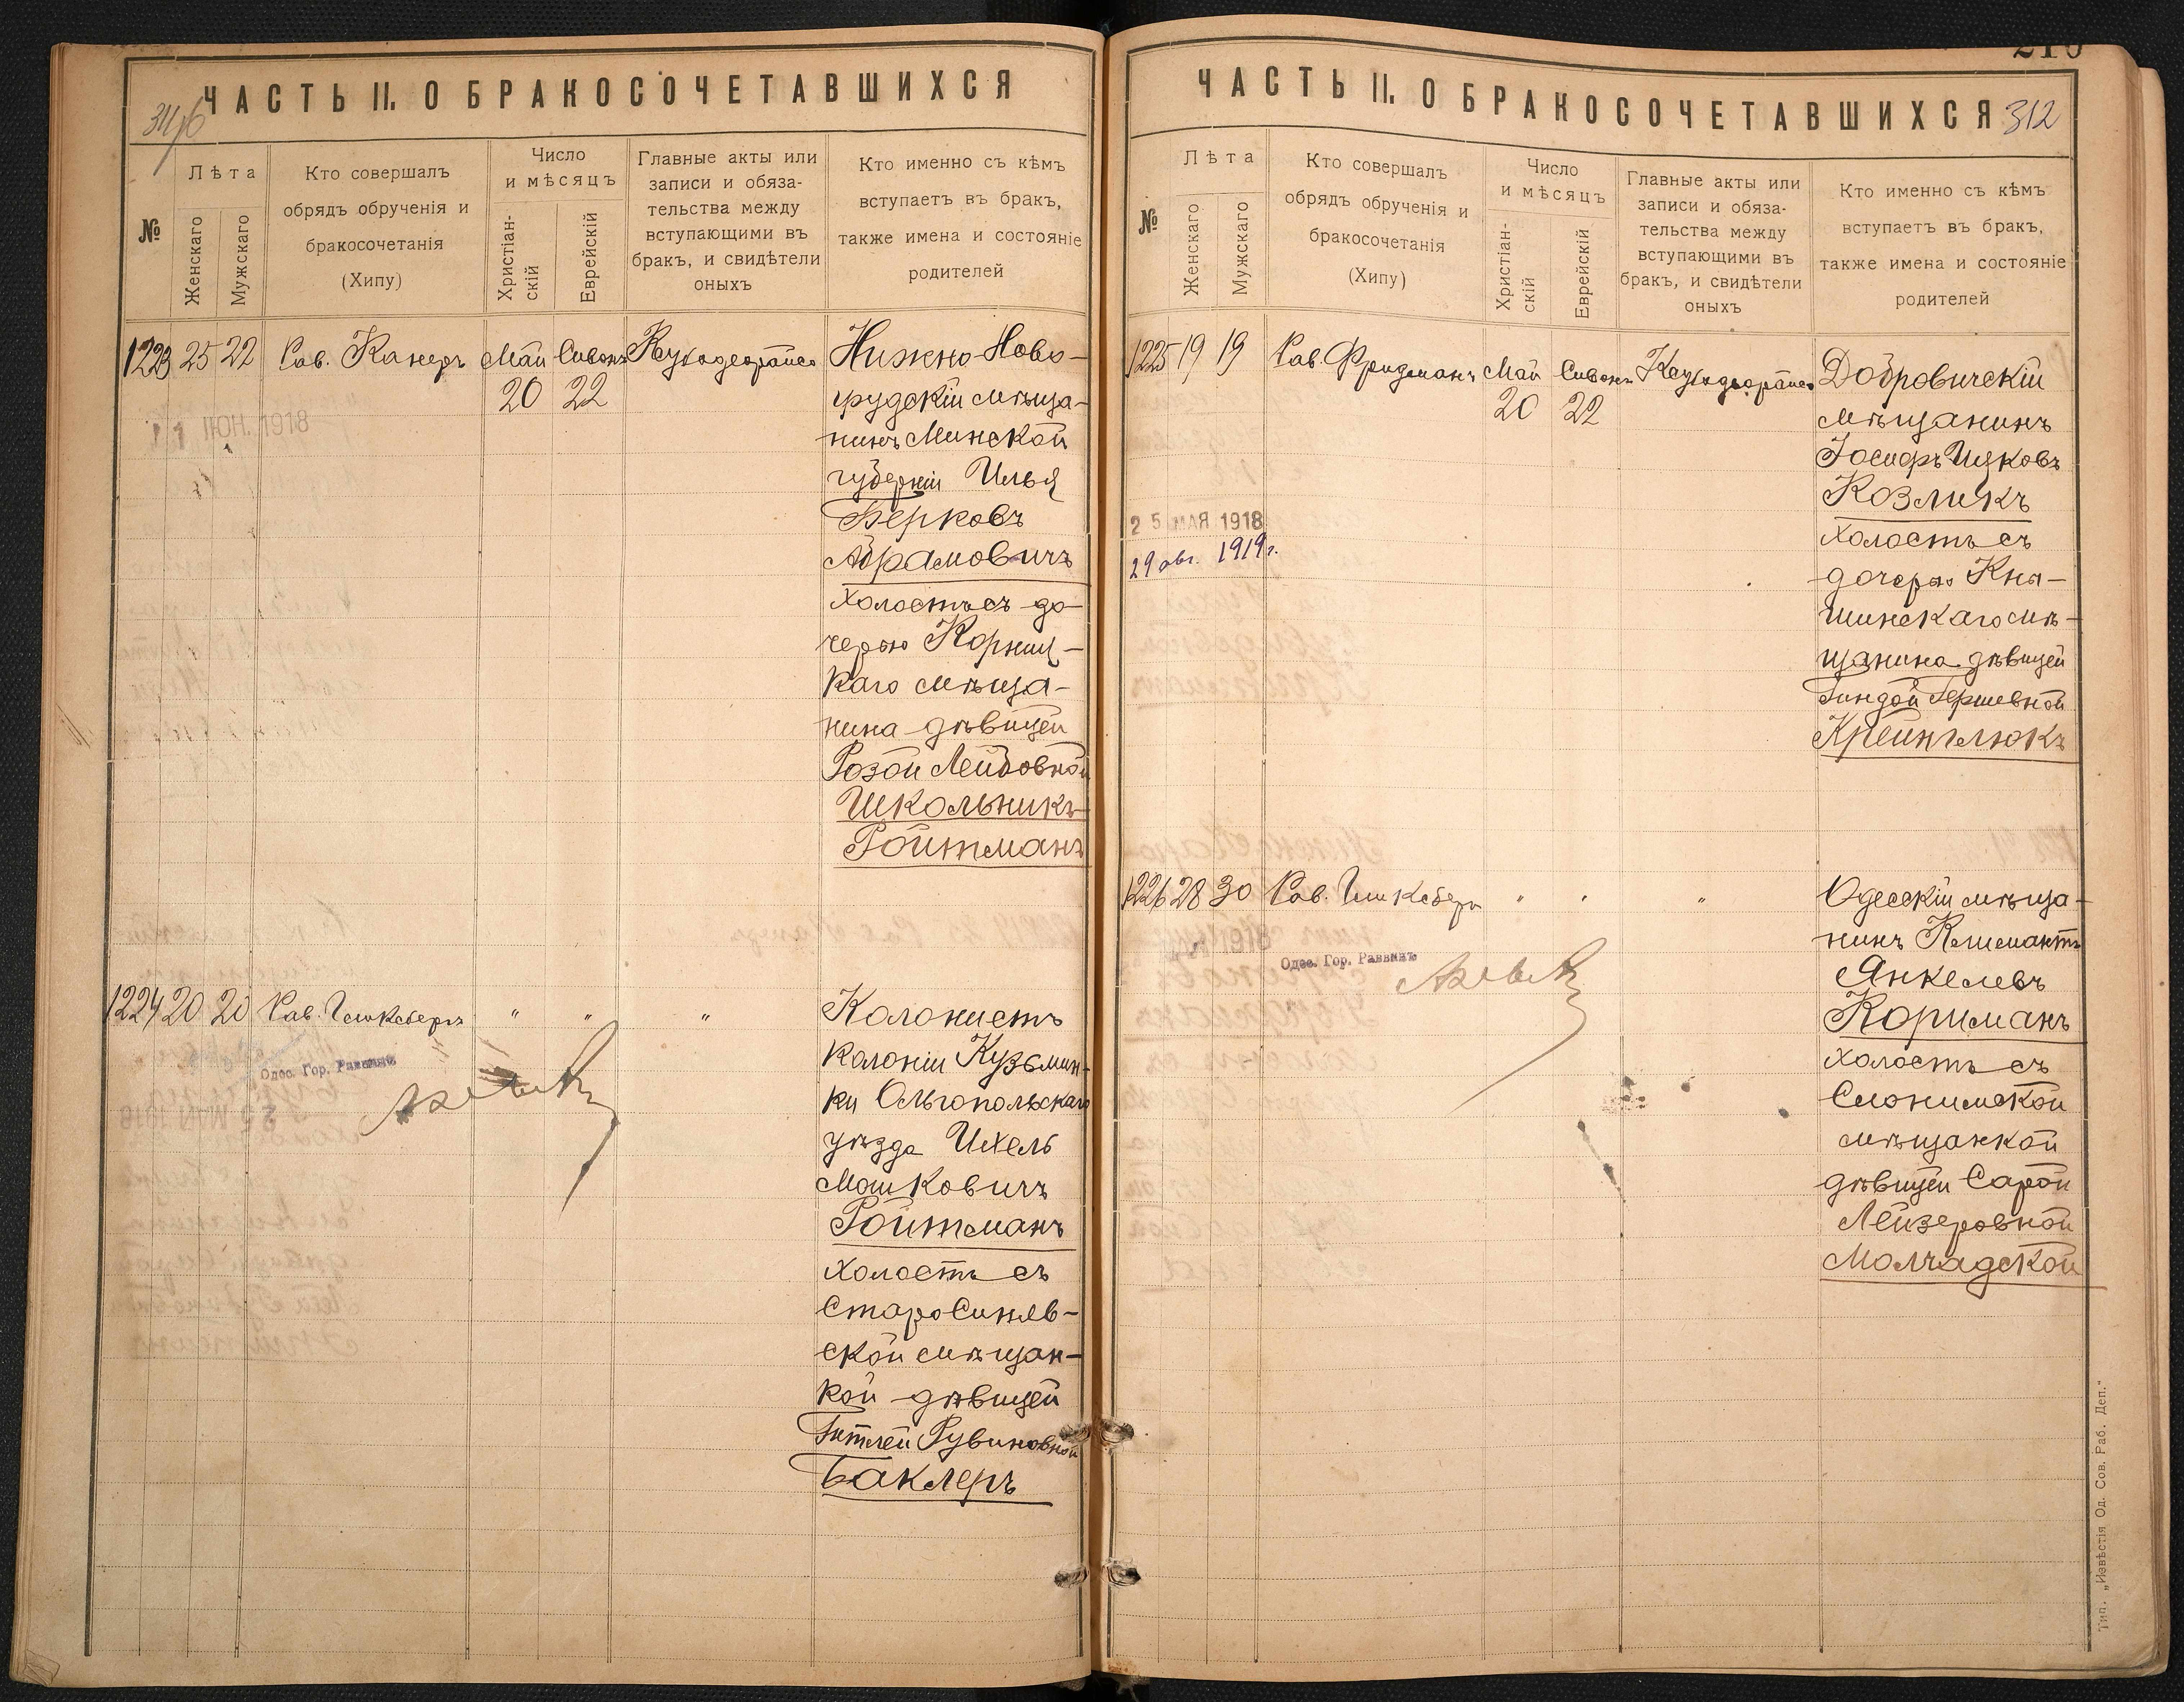 ЧАСТЬ II. О БРАКОСОЧЕТАВШИХСЯ
№
Лѣта
Женскаго
Мужскаго
Кто совершалъ
обрядъ обрученія и
бракосочетанія
(Хипу)
Число
и мѣсяцъ
Христіан-
скій
Еврейскій
Главные акты или
записи и обяза-
тельства между
вступающими въ
бракъ, и свидѣтели
оныхъ
Кто именно съ кѣмъ
вступаетъ въ бракъ,
также имена и состояніе
родителей
1223 25 22 Рав. Канеръ Май Сивонъ
20 22
11 ІЮН. 1918
Нижно-Ново-
грудскій мѣща-
нинъ Минской
губерніи Илья
Берковъ
Абрамовичъ
холостъ съ до-
черью Корниц-
каго мѣща-
нина дѣвицей
Розой Лейбовной
Школьникъ-
Ройтманъ
1224 20 20 Рав. Гинксбергъ " " "
Одес. Гор. Раввинъ
Колонистъ
колоніи Кузьмин-
ки Ольгопольскаго
уѣзда Ихель
Мошковичъ
Ройтманъ
холостъ съ
Старо Синяв-
ской мѣщан-
кой дѣвицей
Гитлей Рувиновной
Баклеръ
ЧАСТЬ II. О БРАКОСОЧЕТАВШИХСЯ
312
№
Лѣта
Женскаго
Мужскаго
Кто совершалъ
обрядъ обрученія и
бракосочетанія
(Хипу)
Число
и мѣсяцъ
Христіан-
скій
Еврейскій
Главные акты или
записи и обяза-
тельства между
вступающими въ
бракъ, и свидѣтели
оныхъ
Кто именно съ кѣмъ
вступаетъ въ бракъ,
также имена и состояніе
родителей
1225 19 19 Рав. Фридманъ Май Сивонъ
20 22
25 МАЯ 1918
29 авг. 1919 г.
Добровичскій
мѣщанинъ
Іосифъ Ицковъ
Козликъ
холостъ съ
дочерью Кны-
шинскаго мѣ-
щанина дѣвицей
Гиндой Гершевной
Крейнглюкъ
1226 28 30 Рав. Гинксбергъ " " "
Одес. Гор. Раввинъ
Одесскій мѣща-
нинъ
Янкелевъ
Корнманъ
холостъ съ
Слонимской
мѣщанкой
дѣвицей Сарой
Лейзеровной
Молчадской
Тип. „Извѣстія Од. Сов. Раб. Деп."